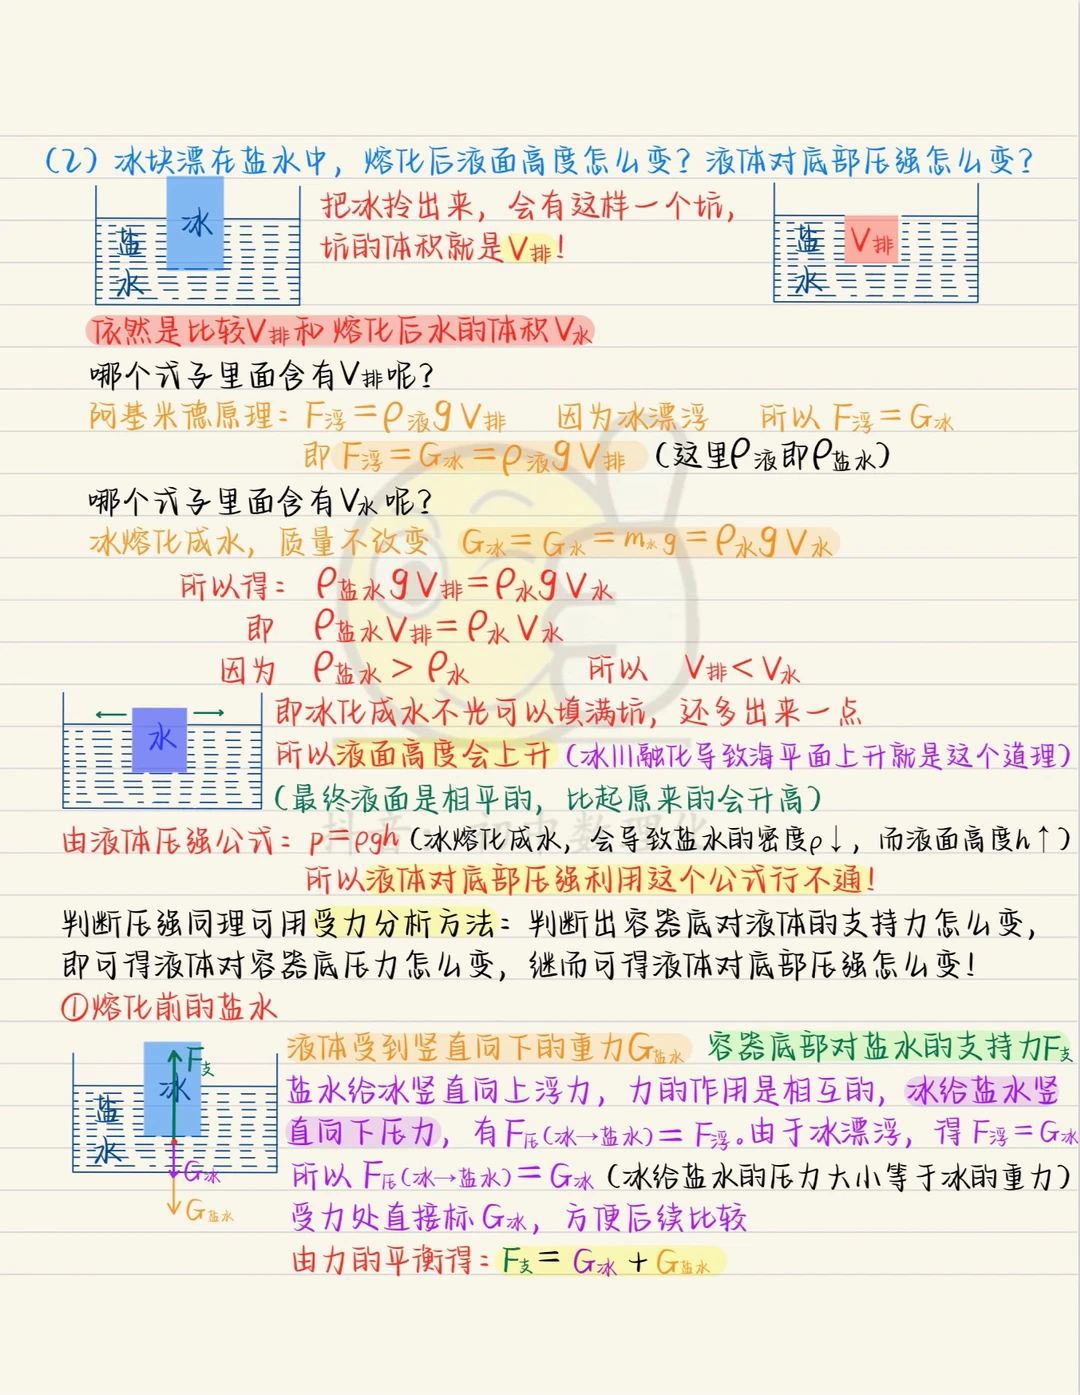 (2) 冰块漂在盐水中，熔化后液面高度怎么变？液体对底部压强怎么变？
冰
盐
水
把冰拎出来，会有这样一个坑，
坑的体积就是V排！
盐
水
V排
依然是比较V排和熔化后水的体积V水
哪个式子里面含有V排呢？
阿基米德原理：F浮＝ρ液gV排 因为冰漂浮 所以F浮＝G冰
即F浮＝G冰＝ρ液gV排（这里ρ液即ρ盐水）
哪个式子里面含有V水呢？
冰熔化成水，质量不改变 G冰＝G水＝m水g＝ρ水gV水
所以得：ρ盐水gV排＝ρ水gV水
即 ρ盐水V排＝ρ水V水
因为 ρ盐水＞ρ水 所以 V排＜V水
水
即冰化成水不光可以填满坑，还多出来一点
所以液面高度会上升（冰川融化导致海平面上升就是这个道理）
（最终液面是相平的，比起原来的会升高）
抖音：初中数理化
由液体压强公式：p＝ρgh（冰熔化成水，会导致盐水的密度ρ↓，而液面高度h↑）
所以液体对底部压强利用这个公式行不通！
判断压强同理可用受力分析方法：判断出容器底对液体的支持力怎么变，
即可得液体对容器底压力怎么变，继而可得液体对底部压强怎么变！
①熔化前的盐水
F支
冰
盐
水
G冰
G盐水
液体受到竖直向下的重力G盐水 容器底部对盐水的支持力F支
盐水给冰竖直向上浮力，力的作用是相互的，冰给盐水竖
直向下压力，有F压(冰→盐水)＝F浮。由于冰漂浮，得F浮＝G冰
所以F压(冰→盐水)＝G冰（冰给盐水的压力大小等于冰的重力）
受力处直接标G冰，方便后续比较
由力的平衡得：F支＝G冰＋G盐水